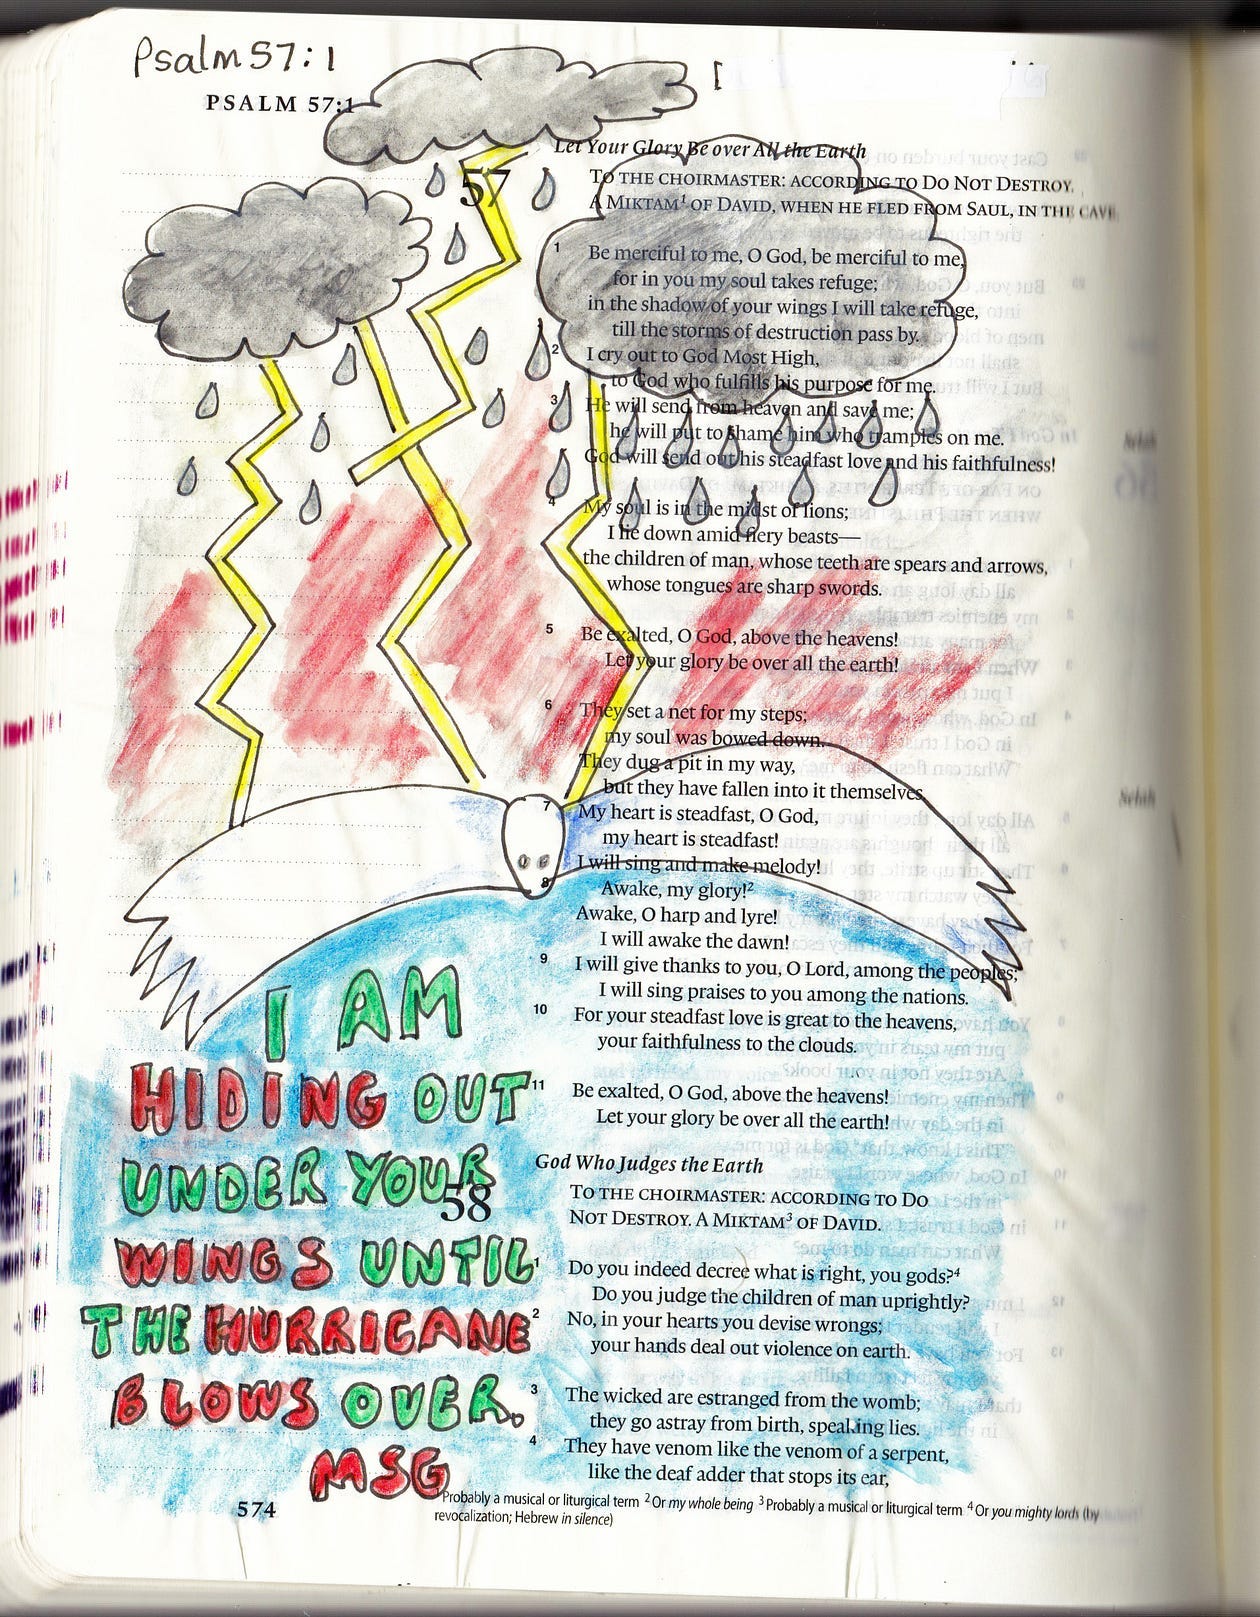 Psalm 57:1
PSALM 57:1
Let Your Glory Be over All the Earth
57
TO THE CHOIRMASTER: ACCORDING TO DO NOT DESTROY.
A MIKTAM¹ OF DAVID, WHEN HE FLED FROM SAUL, IN THE CAVE.
1 Be merciful to me, O God, be merciful to me,
for in you my soul takes refuge;
in the shadow of your wings I will take refuge,
till the storms of destruction pass by.
2 I cry out to God Most High,
to God who fulfills his purpose for me.
3 He will send from heaven and save me;
he will put to shame him who tramples on me.
God will send out his steadfast love and his faithfulness!
4 My soul is in the midst of lions;
I lie down amid fiery beasts—
the children of man, whose teeth are spears and arrows,
whose tongues are sharp swords.
5 Be exalted, O God, above the heavens!
Let your glory be over all the earth!
6 They set a net for my steps;
my soul was bowed down.
They dug a pit in my way,
but they have fallen into it themselves.
7 My heart is steadfast, O God,
my heart is steadfast!
I will sing and make melody!
8 Awake, my glory!²
Awake, O harp and lyre!
I will awake the dawn!
9 I will give thanks to you, O Lord, among the peoples;
I will sing praises to you among the nations.
10 For your steadfast love is great to the heavens,
your faithfulness to the clouds.
11 Be exalted, O God, above the heavens!
Let your glory be over all the earth!
I AM
HIDING OUT
UNDER YOUR
WINGS UNTIL
THE HURRICANE
BLOWS OVER.
MSG
God Who Judges the Earth
58
TO THE CHOIRMASTER: ACCORDING TO DO
NOT DESTROY. A MIKTAM³ OF DAVID.
1 Do you indeed decree what is right, you gods?⁴
Do you judge the children of man uprightly?
2 No, in your hearts you devise wrongs;
your hands deal out violence on earth.
3 The wicked are estranged from the womb;
they go astray from birth, speaking lies.
4 They have venom like the venom of a serpent,
like the deaf adder that stops its ear,
574
Probably a musical or liturgical term ² Or my whole being ³ Probably a musical or liturgical term ⁴ Or you mighty lords (by
revocalization; Hebrew in silence)